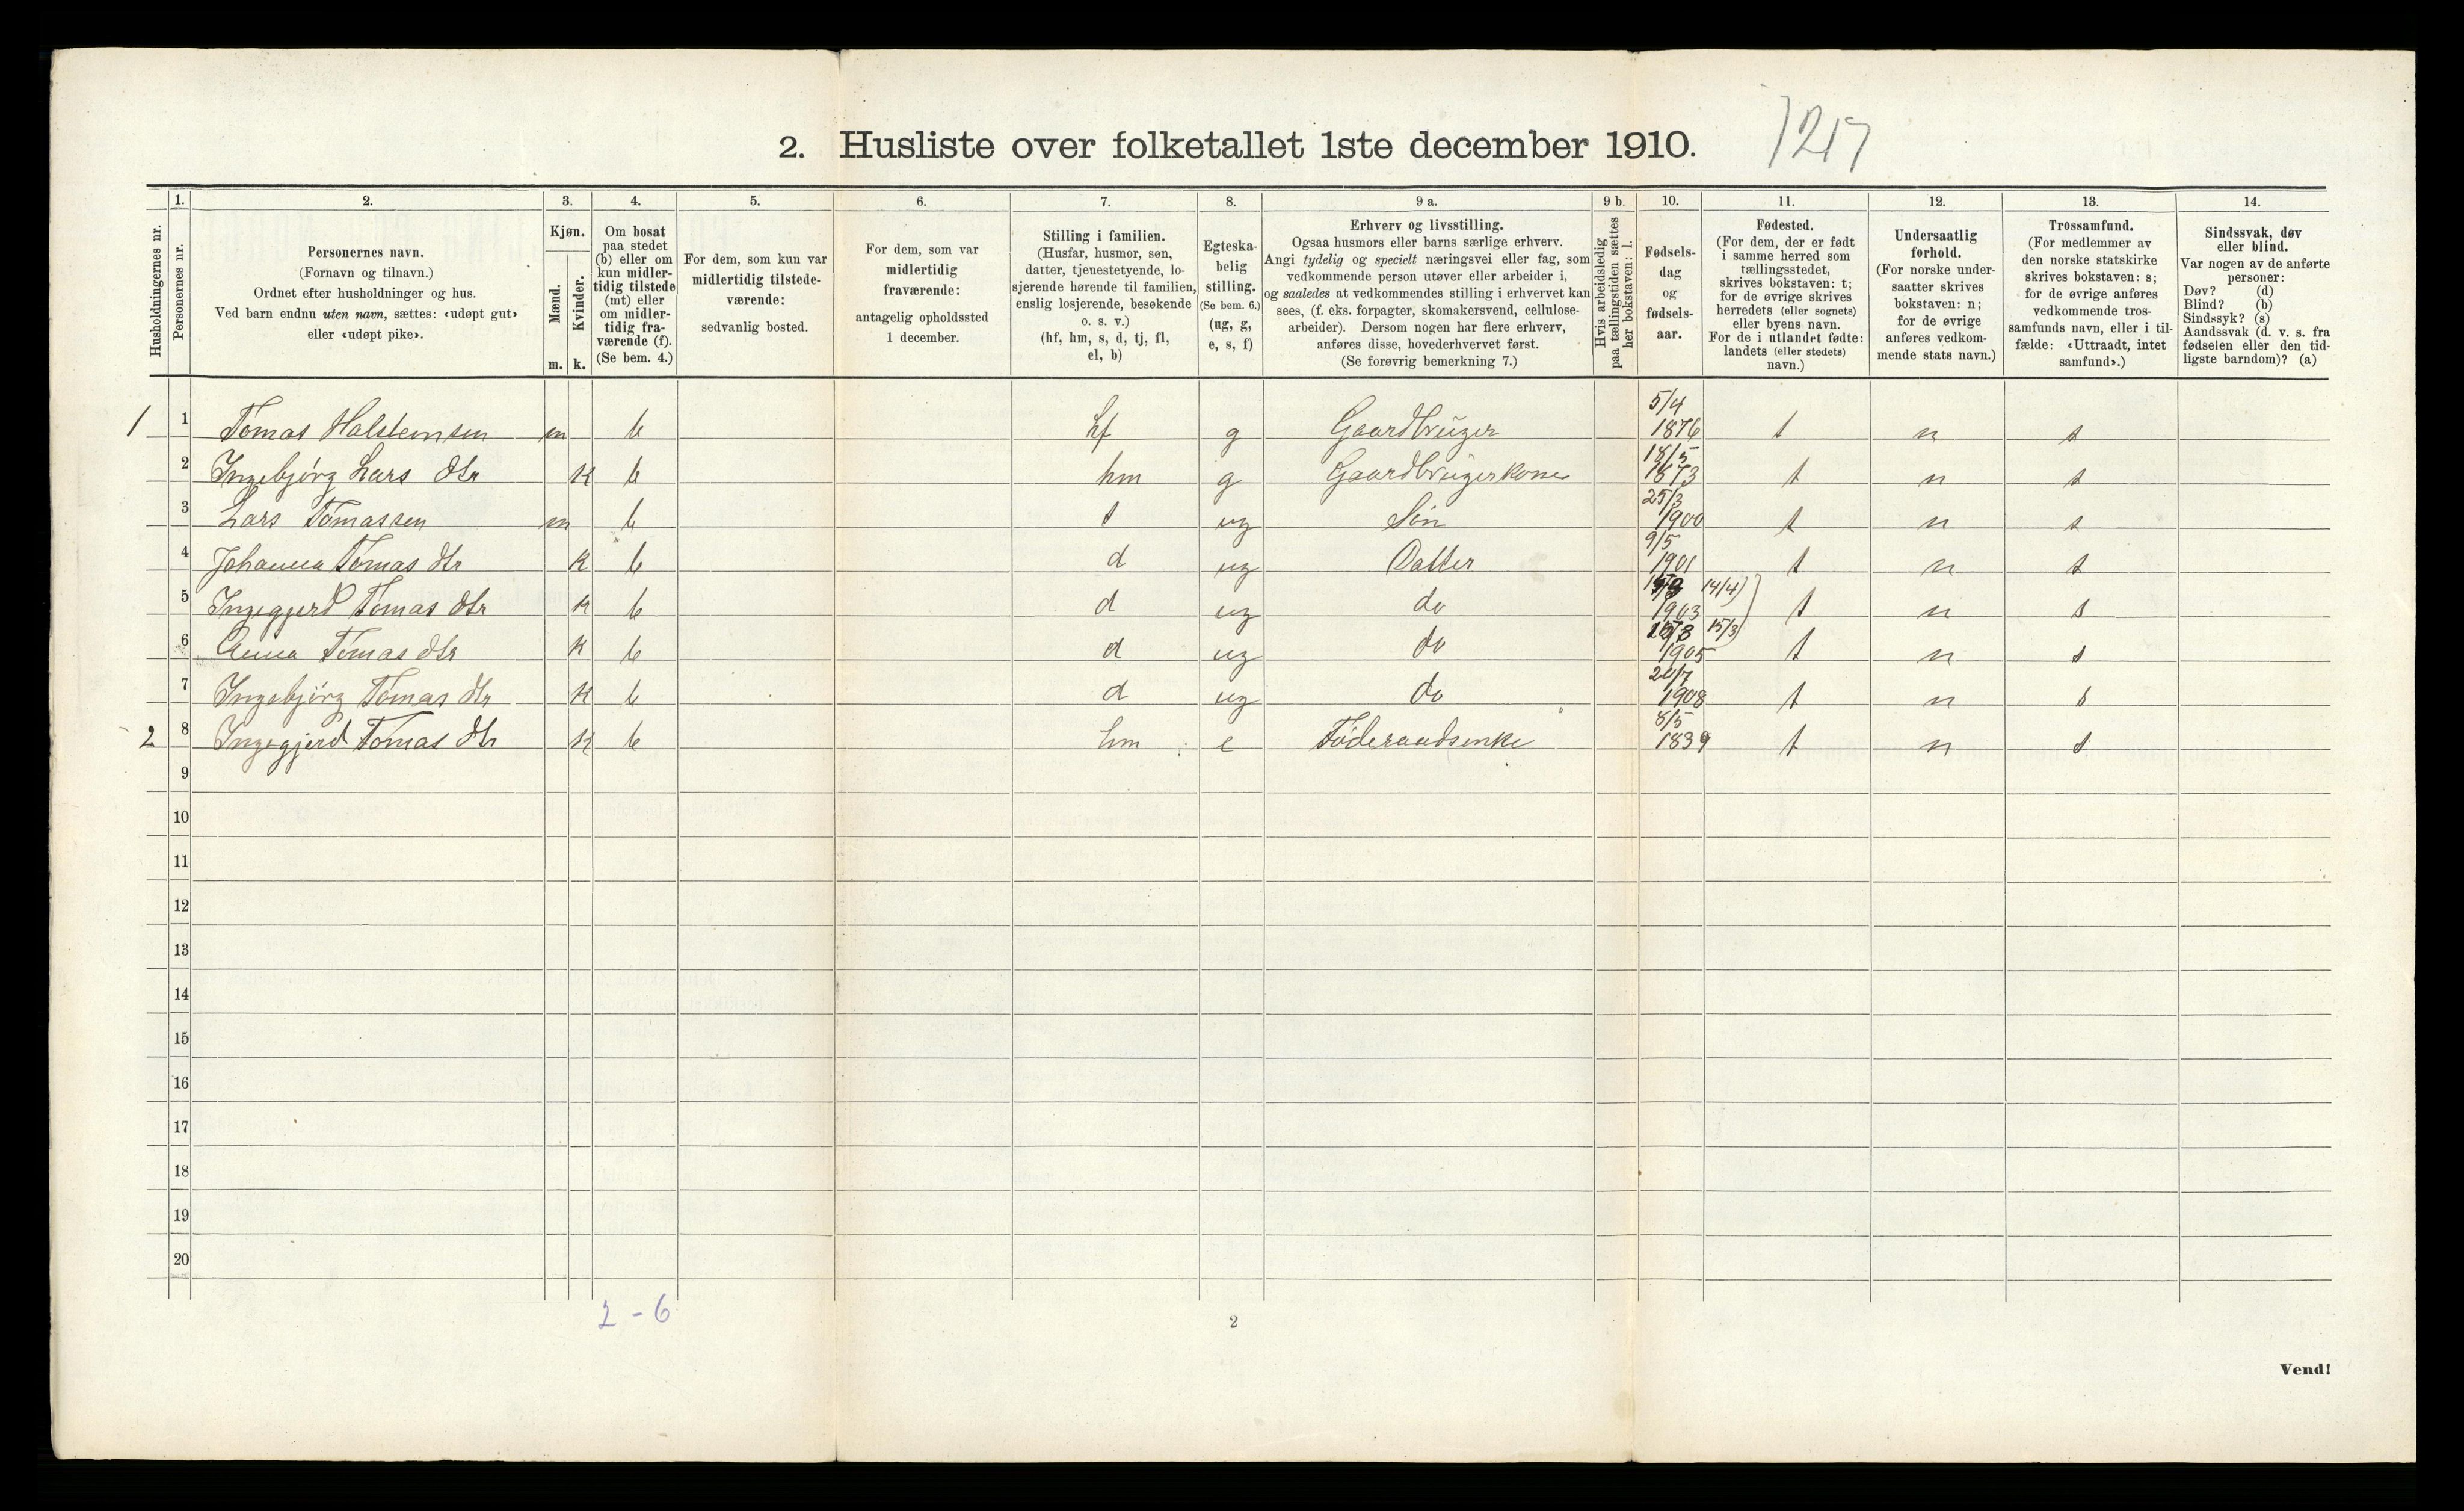 2. Husliste over folketallet 1ste december 1910.
1217
1. 2. 3. 4. 5. 6. 7. 8. 9 a. 9 b. 10. 11. 12. 13. 14.
Husholdningernes nr.
Personernes nr.
Personernes navn.
(Fornavn og tilnavn.)
Ordnet efter husholdninger og hus.
Ved barn endnu uten navn, sættes: «udøpt gut»
eller «udøpt pike».
Kjøn.
Mænd.
Kvinder.
m. k.
Om bosat
paa stedet
(b) eller om
kun midler-
tidig tilstede
(mt) eller
om midler-
tidig fra-
værende (f).
(Se bem. 4.)
For dem, som kun var
midlertidig tilstede-
værende:
sedvanlig bosted.
For dem, som var
midlertidig
fraværende:
antagelig opholdssted
1 december.
Stilling i familien.
(Husfar, husmor, søn,
datter, tjenestetyende, lo-
sjerende hørende til familien,
enslig losjerende, besøkende
o. s. v.)
(hf, hm, s, d, tj, fl,
el, b)
Egteska-
belig
stilling.
(Se bem. 6.)
(ug, g,
e, s, f)
Erhverv og livsstilling.
Ogsaa husmors eller barns særlige erhverv.
Angi tydelig og specielt næringsvei eller fag, som
vedkommende person utøver eller arbeider i,
og saaledes at vedkommendes stilling i erhvervet kan
sees, (f. eks. forpagter, skomakersvend, cellulose-
arbeider). Dersom nogen har flere erhverv,
anføres disse, hovederhvervet først.
(Se forøvrig bemerkning 7.)
Hvis arbeidsledig
paa tællingstiden sættes
her bokstaven: l.
Fødsels-
dag
og
fødsels-
aar.
Fødested.
(For dem, der er født
i samme herred som
tællingsstedet,
skrives bokstaven: t;
for de øvrige skrives
herredets (eller sognets)
eller byens navn.
For de i utlandet fødte:
landets (eller stedets)
navn.)
Undersaatlig
forhold.
(For norske under-
saatter skrives
bokstaven: n;
for de øvrige
anføres vedkom-
mende stats navn.)
Trossamfund.
(For medlemmer av
den norske statskirke
skrives bokstaven: s;
for de øvrige anføres
vedkommende tros-
samfunds navn, eller i til-
fælde: «Uttraadt, intet
samfund».)
Sindssvak, døv
eller blind.
Var nogen av de anførte
personer:
Døv? (d)
Blind? (b)
Sindssyk? (s)
Aandssvak (d. v. s. fra
fødselen eller den tid-
ligste barndom)? (a)
1 1 Tomas Halsteinsen m b hf g Gaardbruger 5/4 1876 t n s
2 Ingebjørg Lars dtr k b hm g Gaardbrugerkone 18/5 1873 t n s
3 Lars Tomassen m b s ug Søn 25/3 1900 t n s
4 Johanna Tomas dtr k b d ug Datter 9/5 1901 t n s
5 Ingegjerd Tomas dtr k b d ug do 1903 14/4) t n s
6 Anna Tomas dtr k b d ug do 1905 15/3) t n s
7 Ingebjørg Tomas dtr k b d ug do 20/7 1908 t n s
2 8 Ingegjerd Tomas dtr k b hm e Føderaadsenke 8/5 1839 t n s
9
10
11
12
13
14
15
16
17
18
19
20
2 - 6
2
Vend!